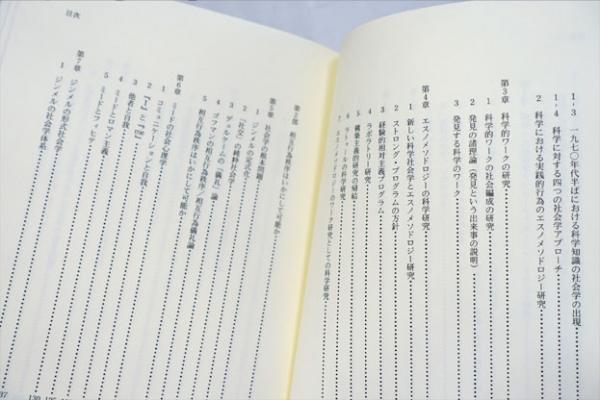 1-3 一九七〇年代半ばにおける科学知識の社会学の出現
1-4 科学に対する四つの社会学アプローチ
2 科学における実践的行為のエスノメソドロジー研究
第3章 科学的ワークの研究
1 科学的ワークの社会編成の研究
2 発見の諸理論(発見という出来事の説明)
3 発見する科学のワーク
第4章 エスノメソドロジーの科学研究
1 新しい科学社会学とエスノメソドロジー研究
2 ストロング・プログラムの方針
3 経験的相対主義プログラム
4 ラボラトリー研究
5 構築主義的研究の帰結
6 ラトゥールの科学研究
7 エスノメソドロジーのワーク研究としての科学研究
目次
相互行為秩序はいかにして可能か
第5章 社会学の根本問題
1 ジンメルの定式化
2 「社交」の純粋社会学
3 デュルケームの「儀礼」論
4 ゴフマンの「相互行為儀礼」論
5 相互行為秩序はいかにして可能か
第6章 ミードの社会心理学
1 コミュニケーションと自我
2 「I」と「me」
3 他者と自我
4 ミードとロマン主義
5 ミードとフィヒテ
第7章 ジンメルの形式社会学
1 ジンメルの社会学体系